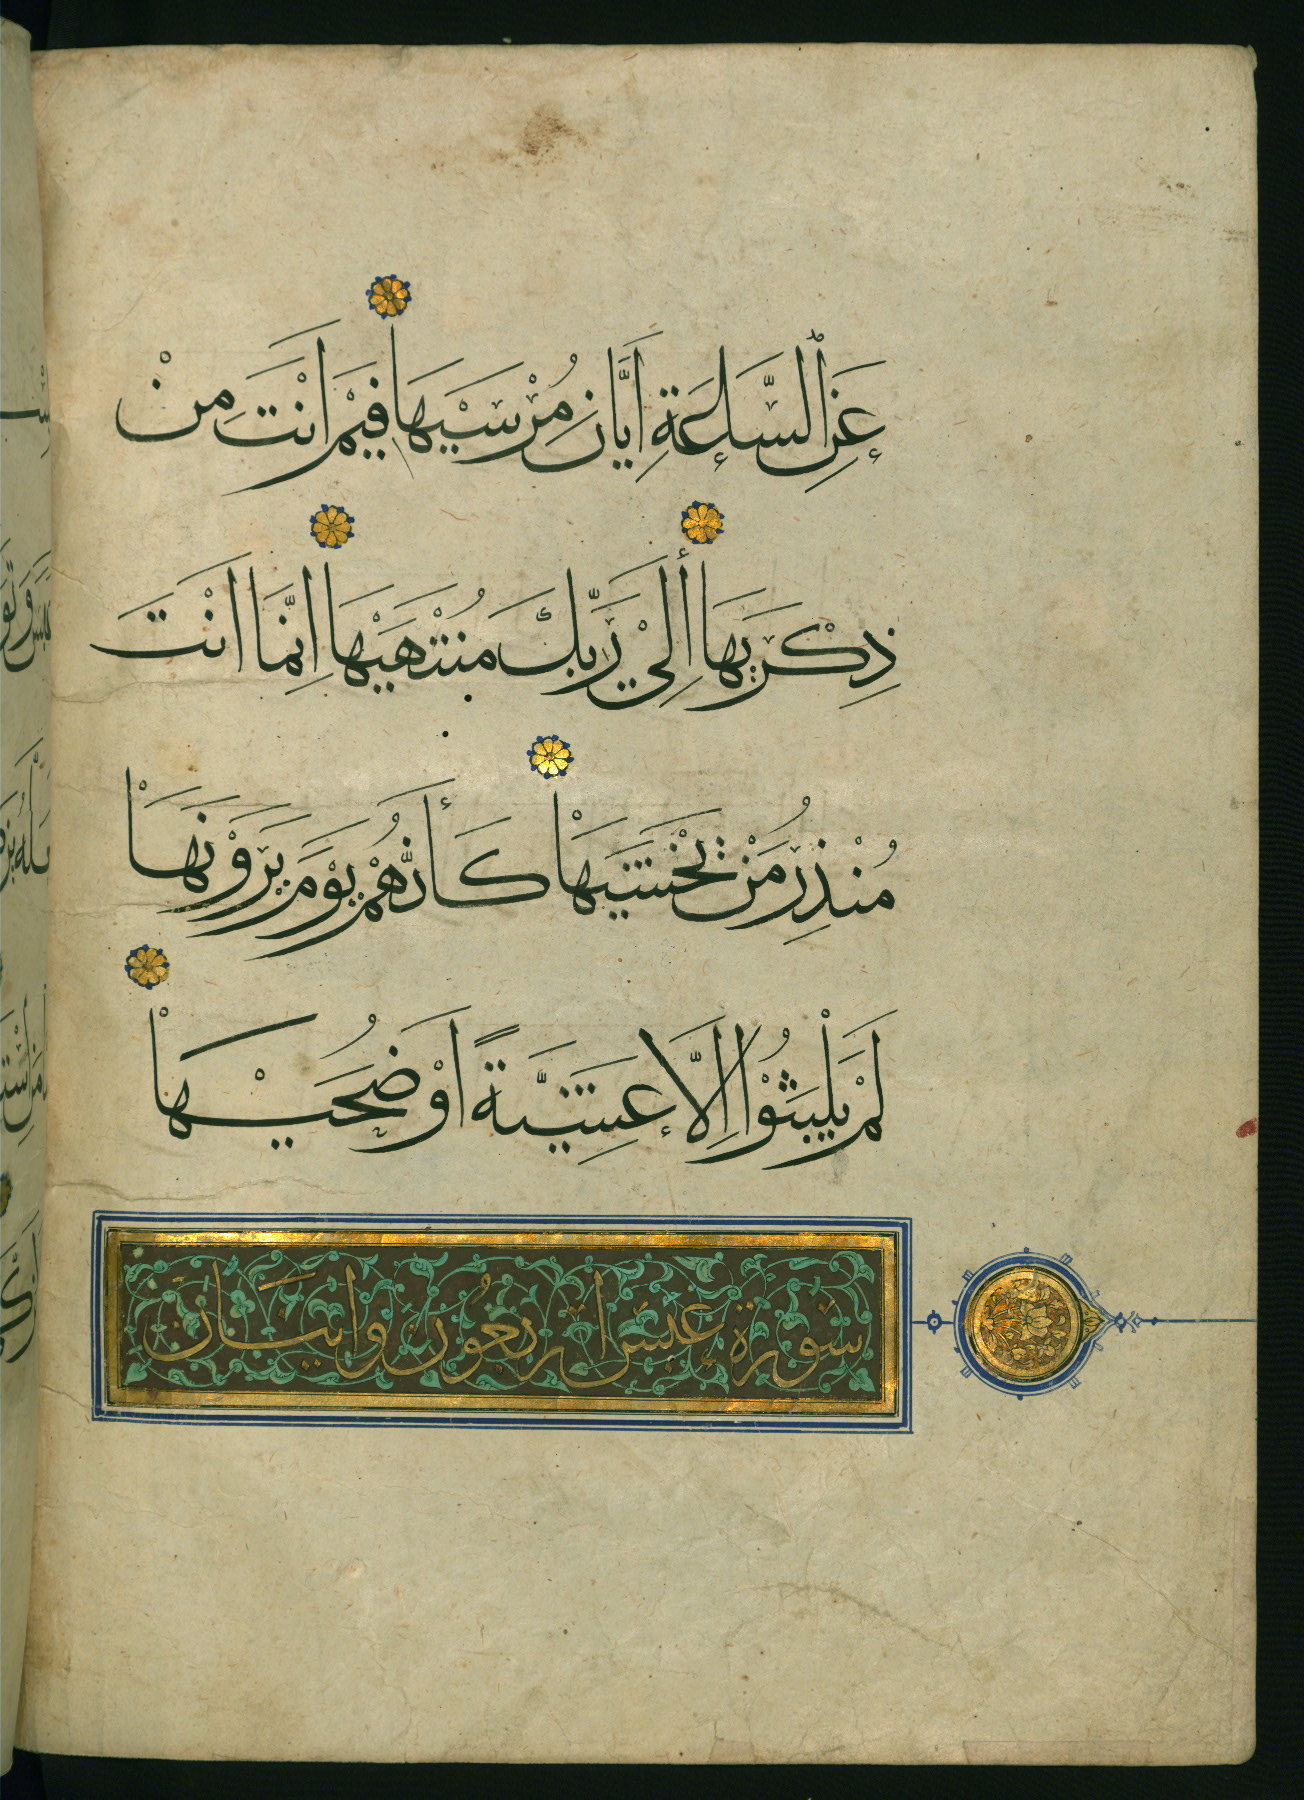 عَنِ ٱلسَّاعَةِ اَيَّانَ مُرْسَيٰهَا فِيْمَ اَنْتَ مِنْ
ذِكْرَيٰهَا اِلٰي رَبِّكَ مُنْتَهَيٰهَا اِنَّمَا اَنْتَ
مُنْذِرُ مَنْ يَخْشَيٰهَا كَأَنَّهُمْ يَوْمَ يَرَوْنَهَا
لَمْ يَلْبَثُوْا اِلَّا عَشِيَّةً اَوْ ضُحَيٰهَا
سورة عبس اربعون وايتان